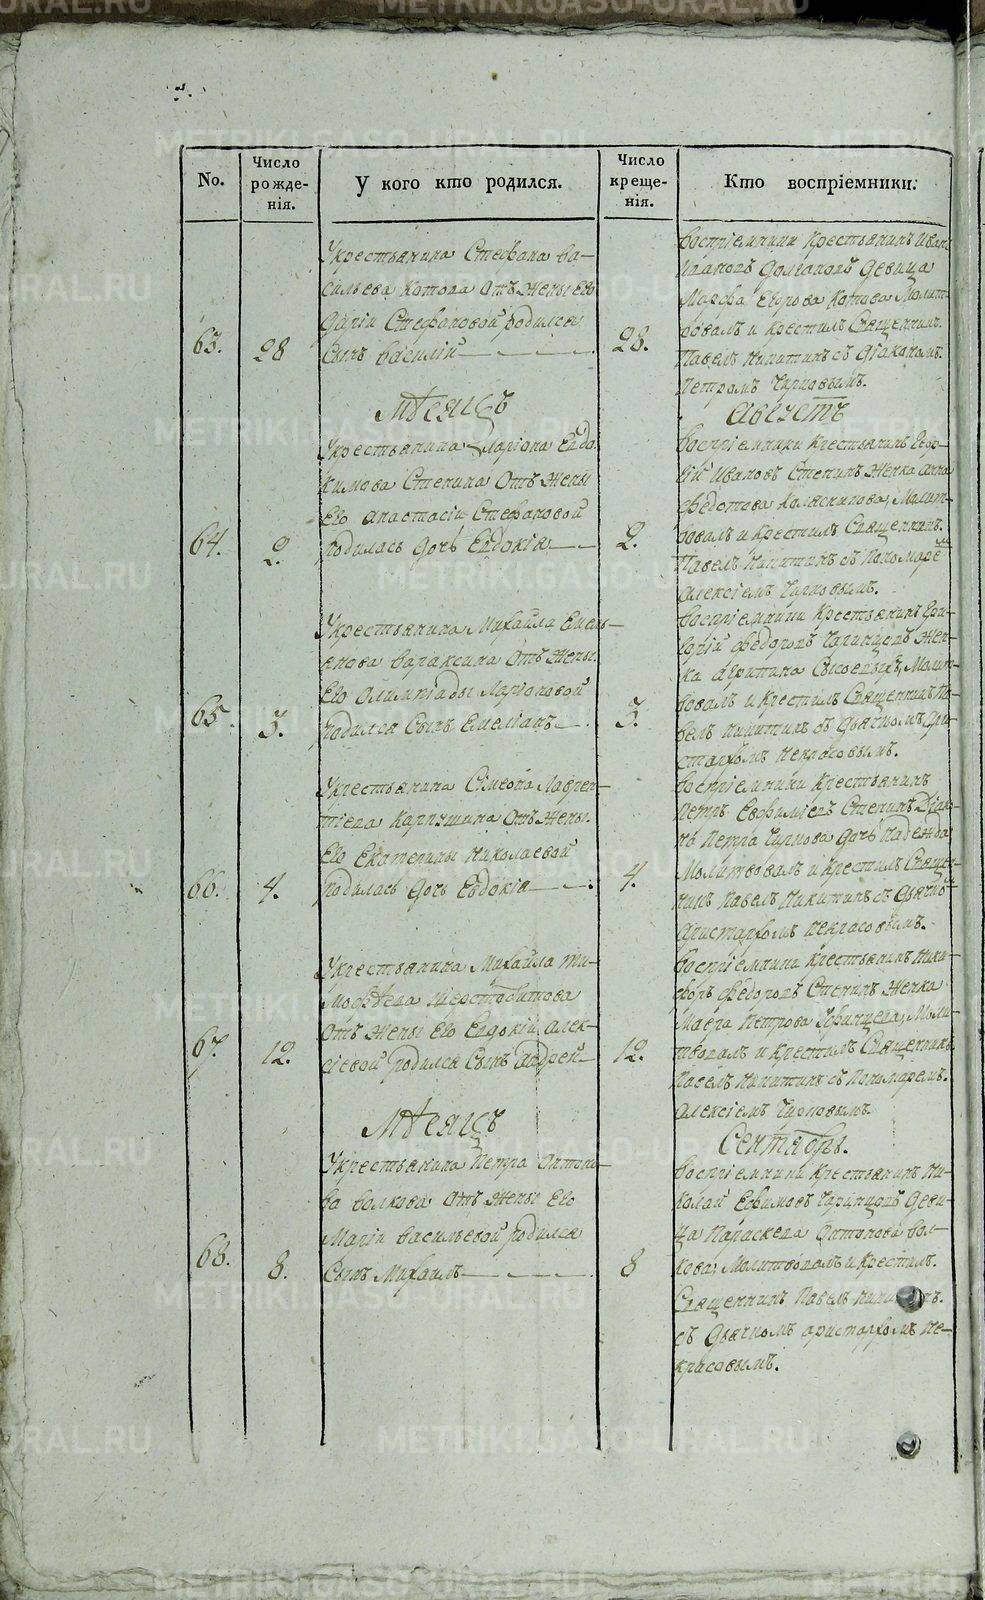 No.
Число рожде-нія.
У кого кто родился.
Число креще-нія.
Кто воспріемники.
63.
28
Укрестьянина Стефана Ва-
сильева Котова Отъ Жены Его
Дарiи Стефановой родился
Сынъ Василiй
28.
Воспрiемники Крестьянинъ Иванъ
Ивановъ Девица
Марфа Котова Молит-
вовалъ и Крестилъ Священникъ.
Павелъ Никитинъ съ Дiакономъ.
Петромъ Чирковымъ.
Мѣсяцъ
Августъ
64.
2.
Укрестьянина Ларiона Евдо-
кимова Степина Отъ Жены
Его Анастасiи Стефановой
родилась Дочь Евдокiя
2.
Воспрiемники Крестьянинъ
Ивановъ Степинъ Женка Анна
Федотова Калясникова, Молит-
вовалъ и Крестилъ Священникъ.
Павелъ Никитинъ съ Пономаремъ
Алексiемъ Чирковымъ.
65.
3.
Укрестьянина Михайла Емель-
янова Вараксина Отъ Жены.
Его Олимпiады Ларiоновой
родился Сынъ Емелiанъ
3.
Воспрiемники Крестьянинъ Гри-
горiй Федоровъ Жен-
ка Акрипина Сысоевыхъ, Молит-
вовалъ и Крестилъ Священникъ Па-
велъ Никитинъ съ Дьячкомъ Ари-
стархомъ Некрасовымъ.
66.
4.
Укрестьянина Сiмеона Лаврен-
тiева Карпушина Отъ Жены.
Его Екатерины Николаевой
родилась Дочь Евдокiя
4.
Воспрiемники Крестьянинъ
Петръ Евфимiевъ Степинъ Дiако-
на Петра Чиркова Дочь Надежда
Молитвовалъ и Крестилъ Священ-
никъ Павелъ Никитинъ съ Дьячкомъ
Аристархомъ Некрасовымъ.
67.
12.
Укрестьянина Михайла Ти-
мофѣева Шерстобитова
Отъ Жены Его Евдокiи Алек-
сiевой родился Сынъ Андрей
12.
Воспрiемники Крестьянинъ Ника-
форъ Федоровъ Степинъ Женка
Мавра Петрова Моли-
твовалъ и Крестилъ Священникъ
Павелъ Никитинъ съ Пономаремъ.
Алексiемъ Чирковымъ
Мѣсяцъ
Сентябрь.
68.
8.
Укрестьянина Петра Антоно-
ва Волкова Отъ Жены Его
Марiи Васильевой родился
Сынъ Михаилъ
8
Воспрiемники Крестьянинъ Ни-
колай Ефимовъ Деви-
ца Параскева Антонова Вол-
кова, Молитвовалъ и Крестилъ.
Священникъ Павелъ Никитинъ.
съ Дьячкомъ Аристархомъ Не-
красовымъ.
METRIKI.GASO-URAL.RU